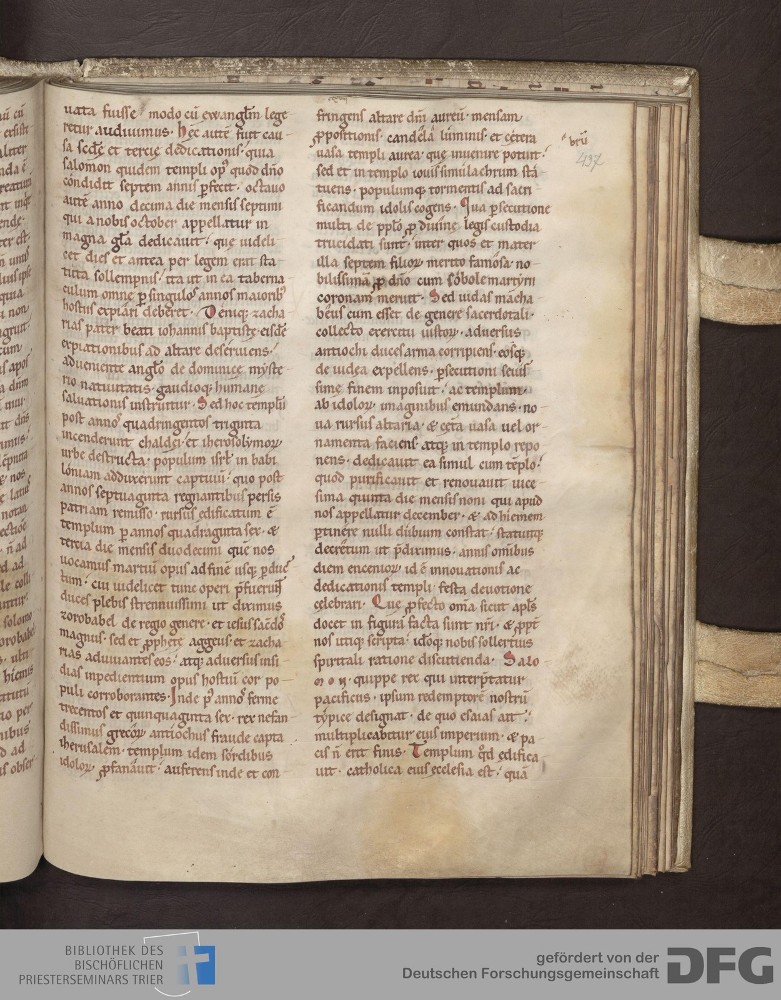 uata fuisse modo cũ ewanglm̃ lege
retur audiuimus. hęc autẽ fuit cau
sa scdę et tercię dedicationis. quia
salomon quidem templi op' quod dño
condidit septem annis p̱fecit. octauo
autẽ anno decima die mensis septimi
qui a nobis october appellatur in
magna gl̃a dedicauit. que uideli
cet dies et antea per legem erat sta
tuta sollempnis. ita ut in ea taberna
culum omne p̱ singulos annos maiorib'
hostiis expiari deberet. Deniq; zacha
rias pater beati iohannis baptistę eisdẽ
expiationibus ad altare deseruiens.
adueniente anglo de dominicę myste
rio natiuitatis. gaudioq; humanę
saluationis instruitur. Sed hoc templũ
post annos quadringentos triginta
incenderunt chaldei. et iherosolymoꝝ
urbe destructa. populum isrl̃ in babi
loniam adduxerunt captiuũ. quo post
annos septuaginta regnantibus persis
patriam remisso. rursus ędificatum ẽ
templum p̱ annos quadraginta sex. &
tercia die mensis duodecimi quẽ nos
uocamus martiũ opus ad finẽ usq; p̱duc
tum. cui uidelicet tunc operi p̃fuerunt
duces plebis strennuissimi ut diximus
zorobabel de regio genere. et iesus sacẽdos
magnus. sed et ꝓphetę aggeus et zacha
rias adiuuantes eos. atq; aduersus insi
dias inpedientium opus hostiũ cor po
puli corroborantes. Inde p' annos ferme
trecentos et quinquaginta sex. rex nefan
dissimus grecoꝝ antiochus fraude capta
iherusalem. templum idem sordibus
idoloꝝ ꝓfanauit. auferens inde et con
fringens altare dñi aureũ. mensam
ꝓpositionis. candela luminis. et cetera
uasa templi aurea. quę inuenire potuit.
sed et in templo iouis simulachrum sta
tuens. populumq; tormentis ad sacri
ficandum idolis cogens. Qua p̱secutione
multi de pplo ꝓ diuinę legis custodia
trucidati sunt. inter quos et mater
illa septem filioꝝ merito famosa. no
bilissimã ꝓ dño cum sobole martyrii
coronam meruit. Sed iudas macha
beus cum esset de genere sacerdotali.
collecto exercitu iustoꝝ. aduersus
antiochi duces arma corripiens. eosq;
de iudea expellens. p̱secutioni seuis
simę finem inposuit. ac templum
ab idoloꝝ imaginibus emundans. no
ua rursus altaria. & cetã uasa uel or
namenta faciens. atq; in templo repo
nens. dedicauit ea simul cum tẽplo.
quod purificauit et renouauit uice
sima quinta die mensis noni qui apud
nos appellatur december. & ad hiemem
p̱tinere nulli dubium constat. statuitq;
decretum ut p̃diximus. annis omĩbus
diem encenioꝝ id ẽ innouationis ac
dedicationis templi festa deuotione
celebrari. Quę ꝓfecto oma sicut apl̃s
docet in figurã facta sunt nr̃i. & ꝓpt̃
nos utiq; scripta. idoq; nobis sollertius
spiritali ratione discutienda. Salo
mon. quippe rex qui interp̃tatur
pacificus. ipsum redemptorẽ nostrũ
typice designat. de quo esaias ait.
multiplicabitur eius imperium. & pa
cis ñ erit finis. Templum qd̃ ędifica
uit. catholica eius ęcclesia est. quã
437
BIBLIOTHEK DES
BISCHÖFLICHEN
PRIESTERSEMINARS TRIER
gefördert von der
Deutschen Forschungsgemeinschaft
DFG